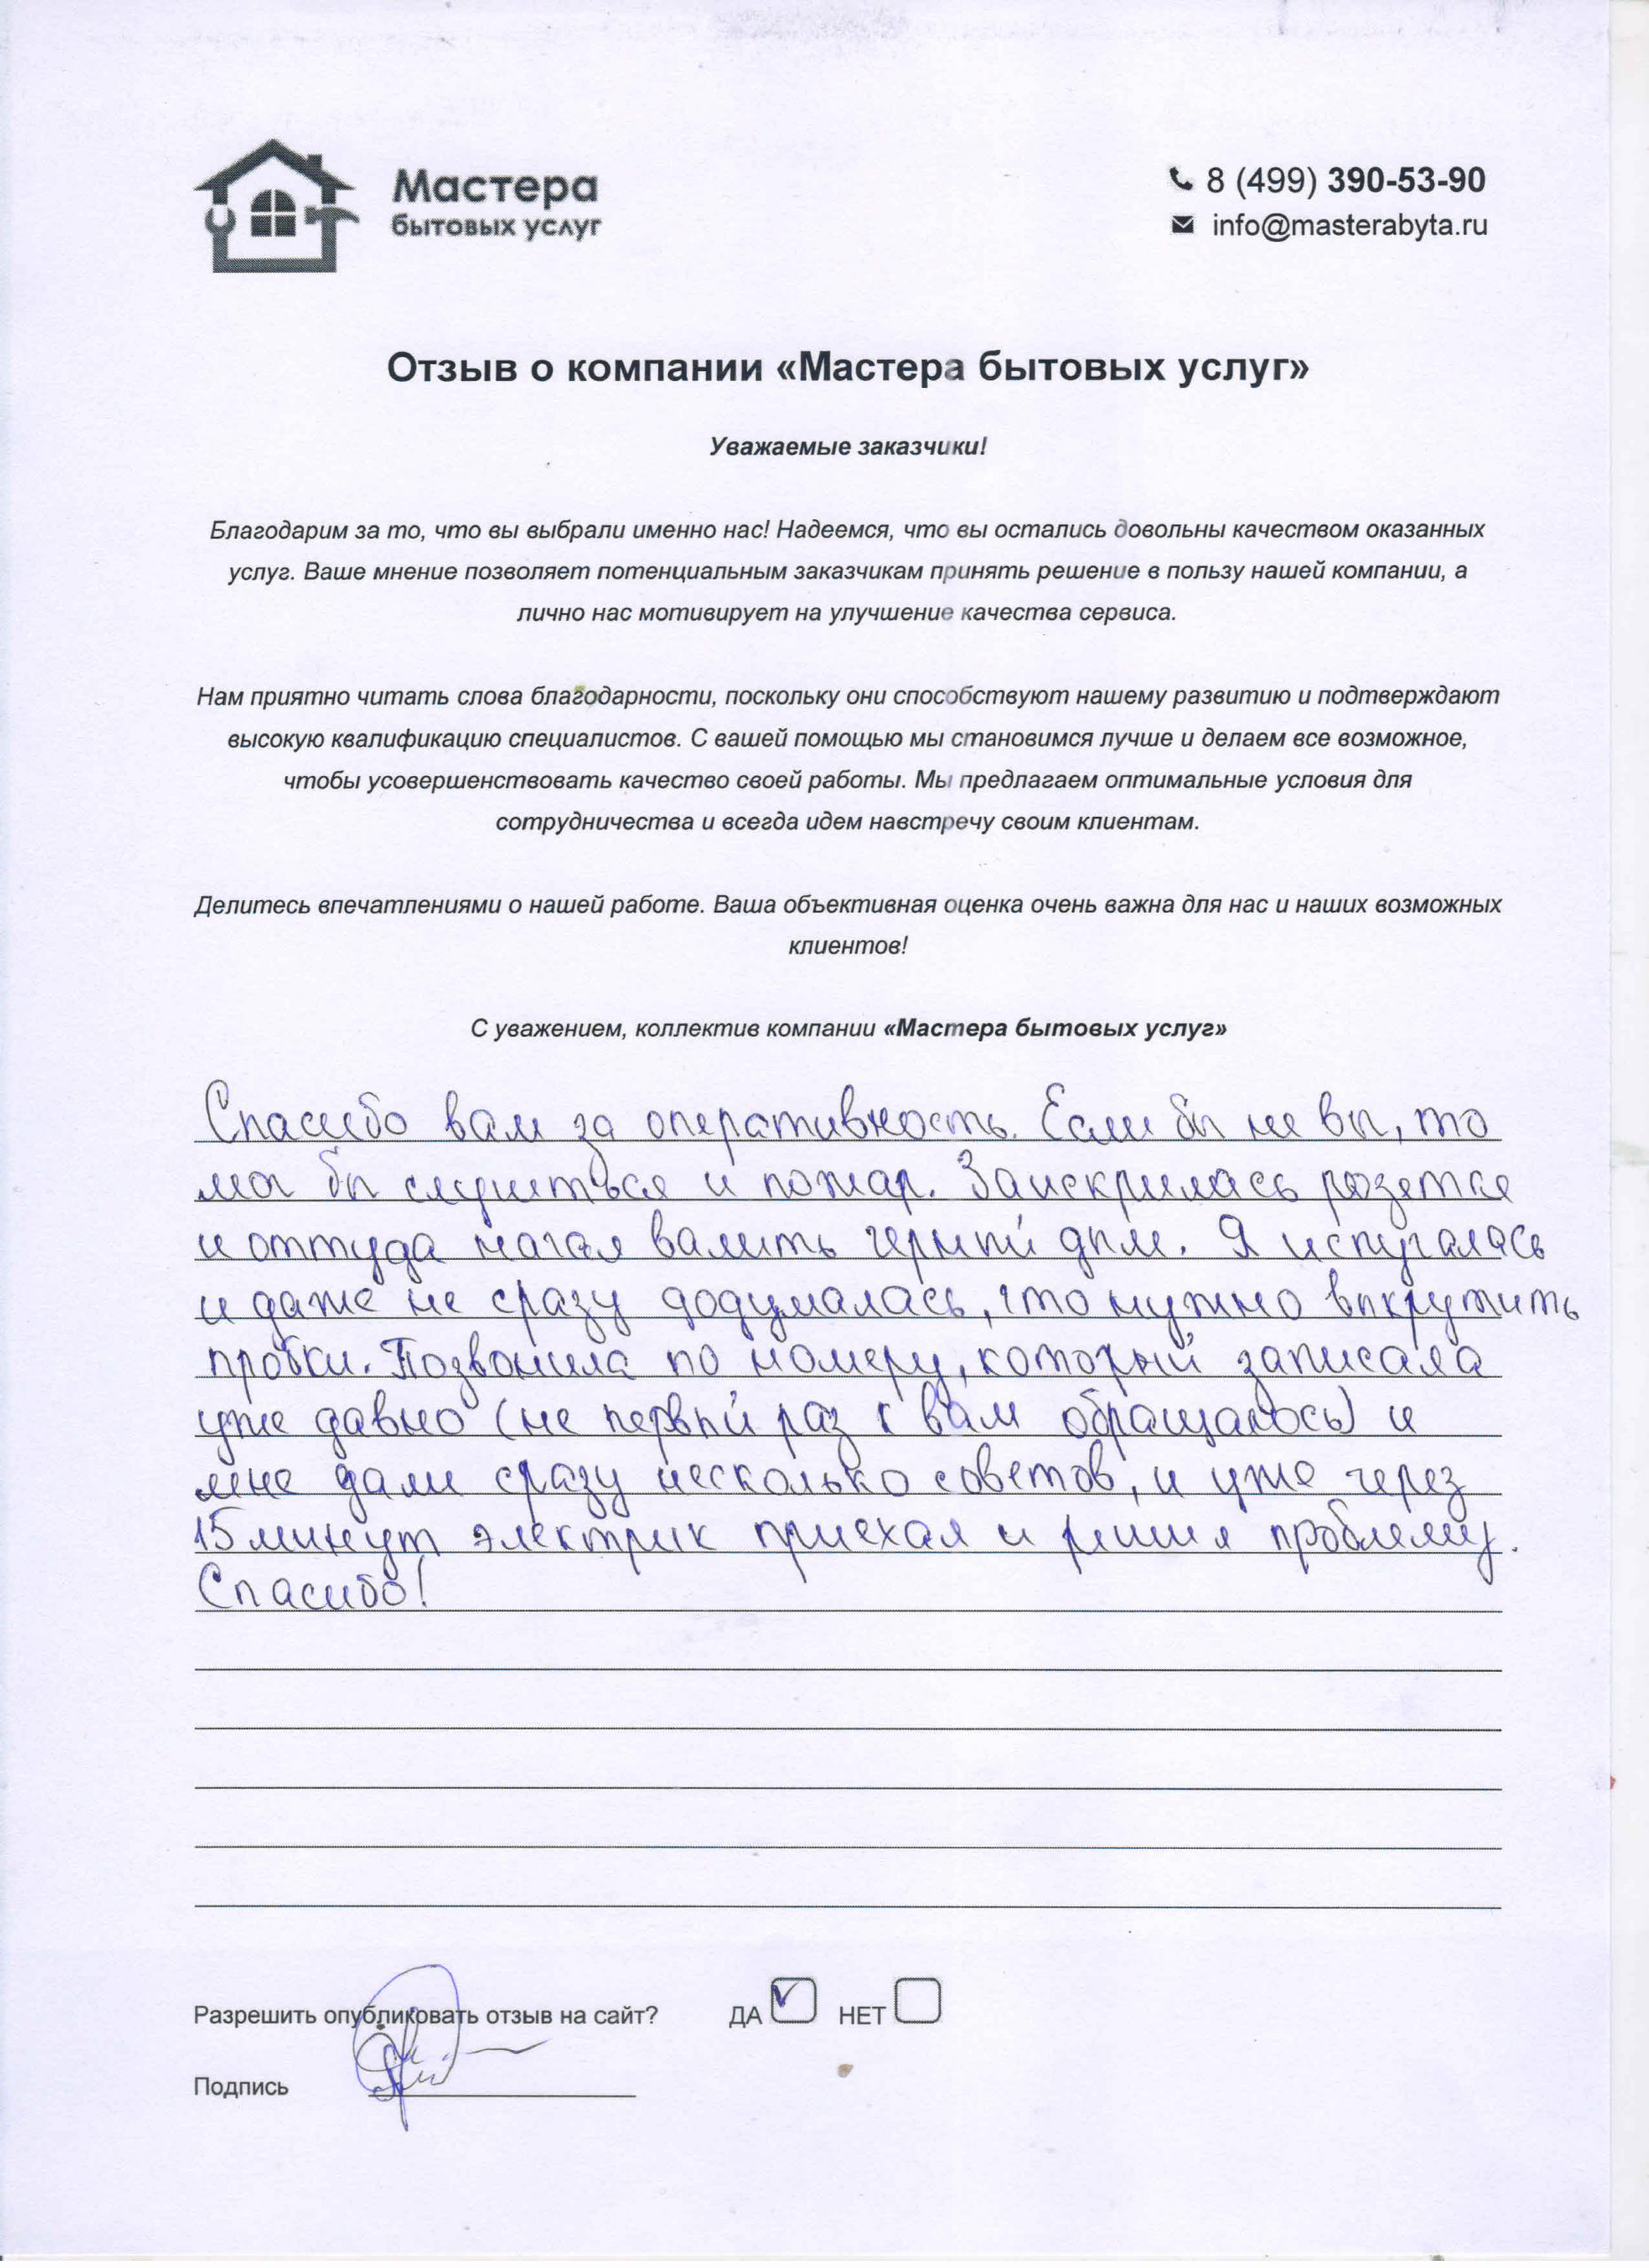 Мастера
бытовых услуг
8 (499) 390-53-90
info@masterabyta.ru
Отзыв о компании «Мастера бытовых услуг»
Уважаемые заказчики!
Благодарим за то, что вы выбрали именно нас! Надеемся, что вы остались довольны качеством оказанных
услуг. Ваше мнение позволяет потенциальным заказчикам принять решение в пользу нашей компании, а
лично нас мотивирует на улучшение качества сервиса.
Нам приятно читать слова благодарности, поскольку они способствуют нашему развитию и подтверждают
высокую квалификацию специалистов. С вашей помощью мы становимся лучше и делаем все возможное,
чтобы усовершенствовать качество своей работы. Мы предлагаем оптимальные условия для
сотрудничества и всегда идем навстречу своим клиентам.
Делитесь впечатлениями о нашей работе. Ваша объективная оценка очень важна для нас и наших возможных
клиентов!
С уважением, коллектив компании «Мастера бытовых услуг»
Спасибо вам за оперативность. Если бы не вы, то
мог бы случиться и пожар. Заискрилась розетка
и оттуда начал валить черный дым. Я испугалась
и даже не сразу додумалась, что нужно выкрутить
пробки. Позвонила по номеру, который записала
уже давно (не первый раз к вам обращаюсь) и
мне дали сразу несколько советов, и уже через
15 минут электрик приехал и решил проблему.
Спасибо!
Разрешить опубликовать отзыв на сайт? ДА НЕТ
Подпись